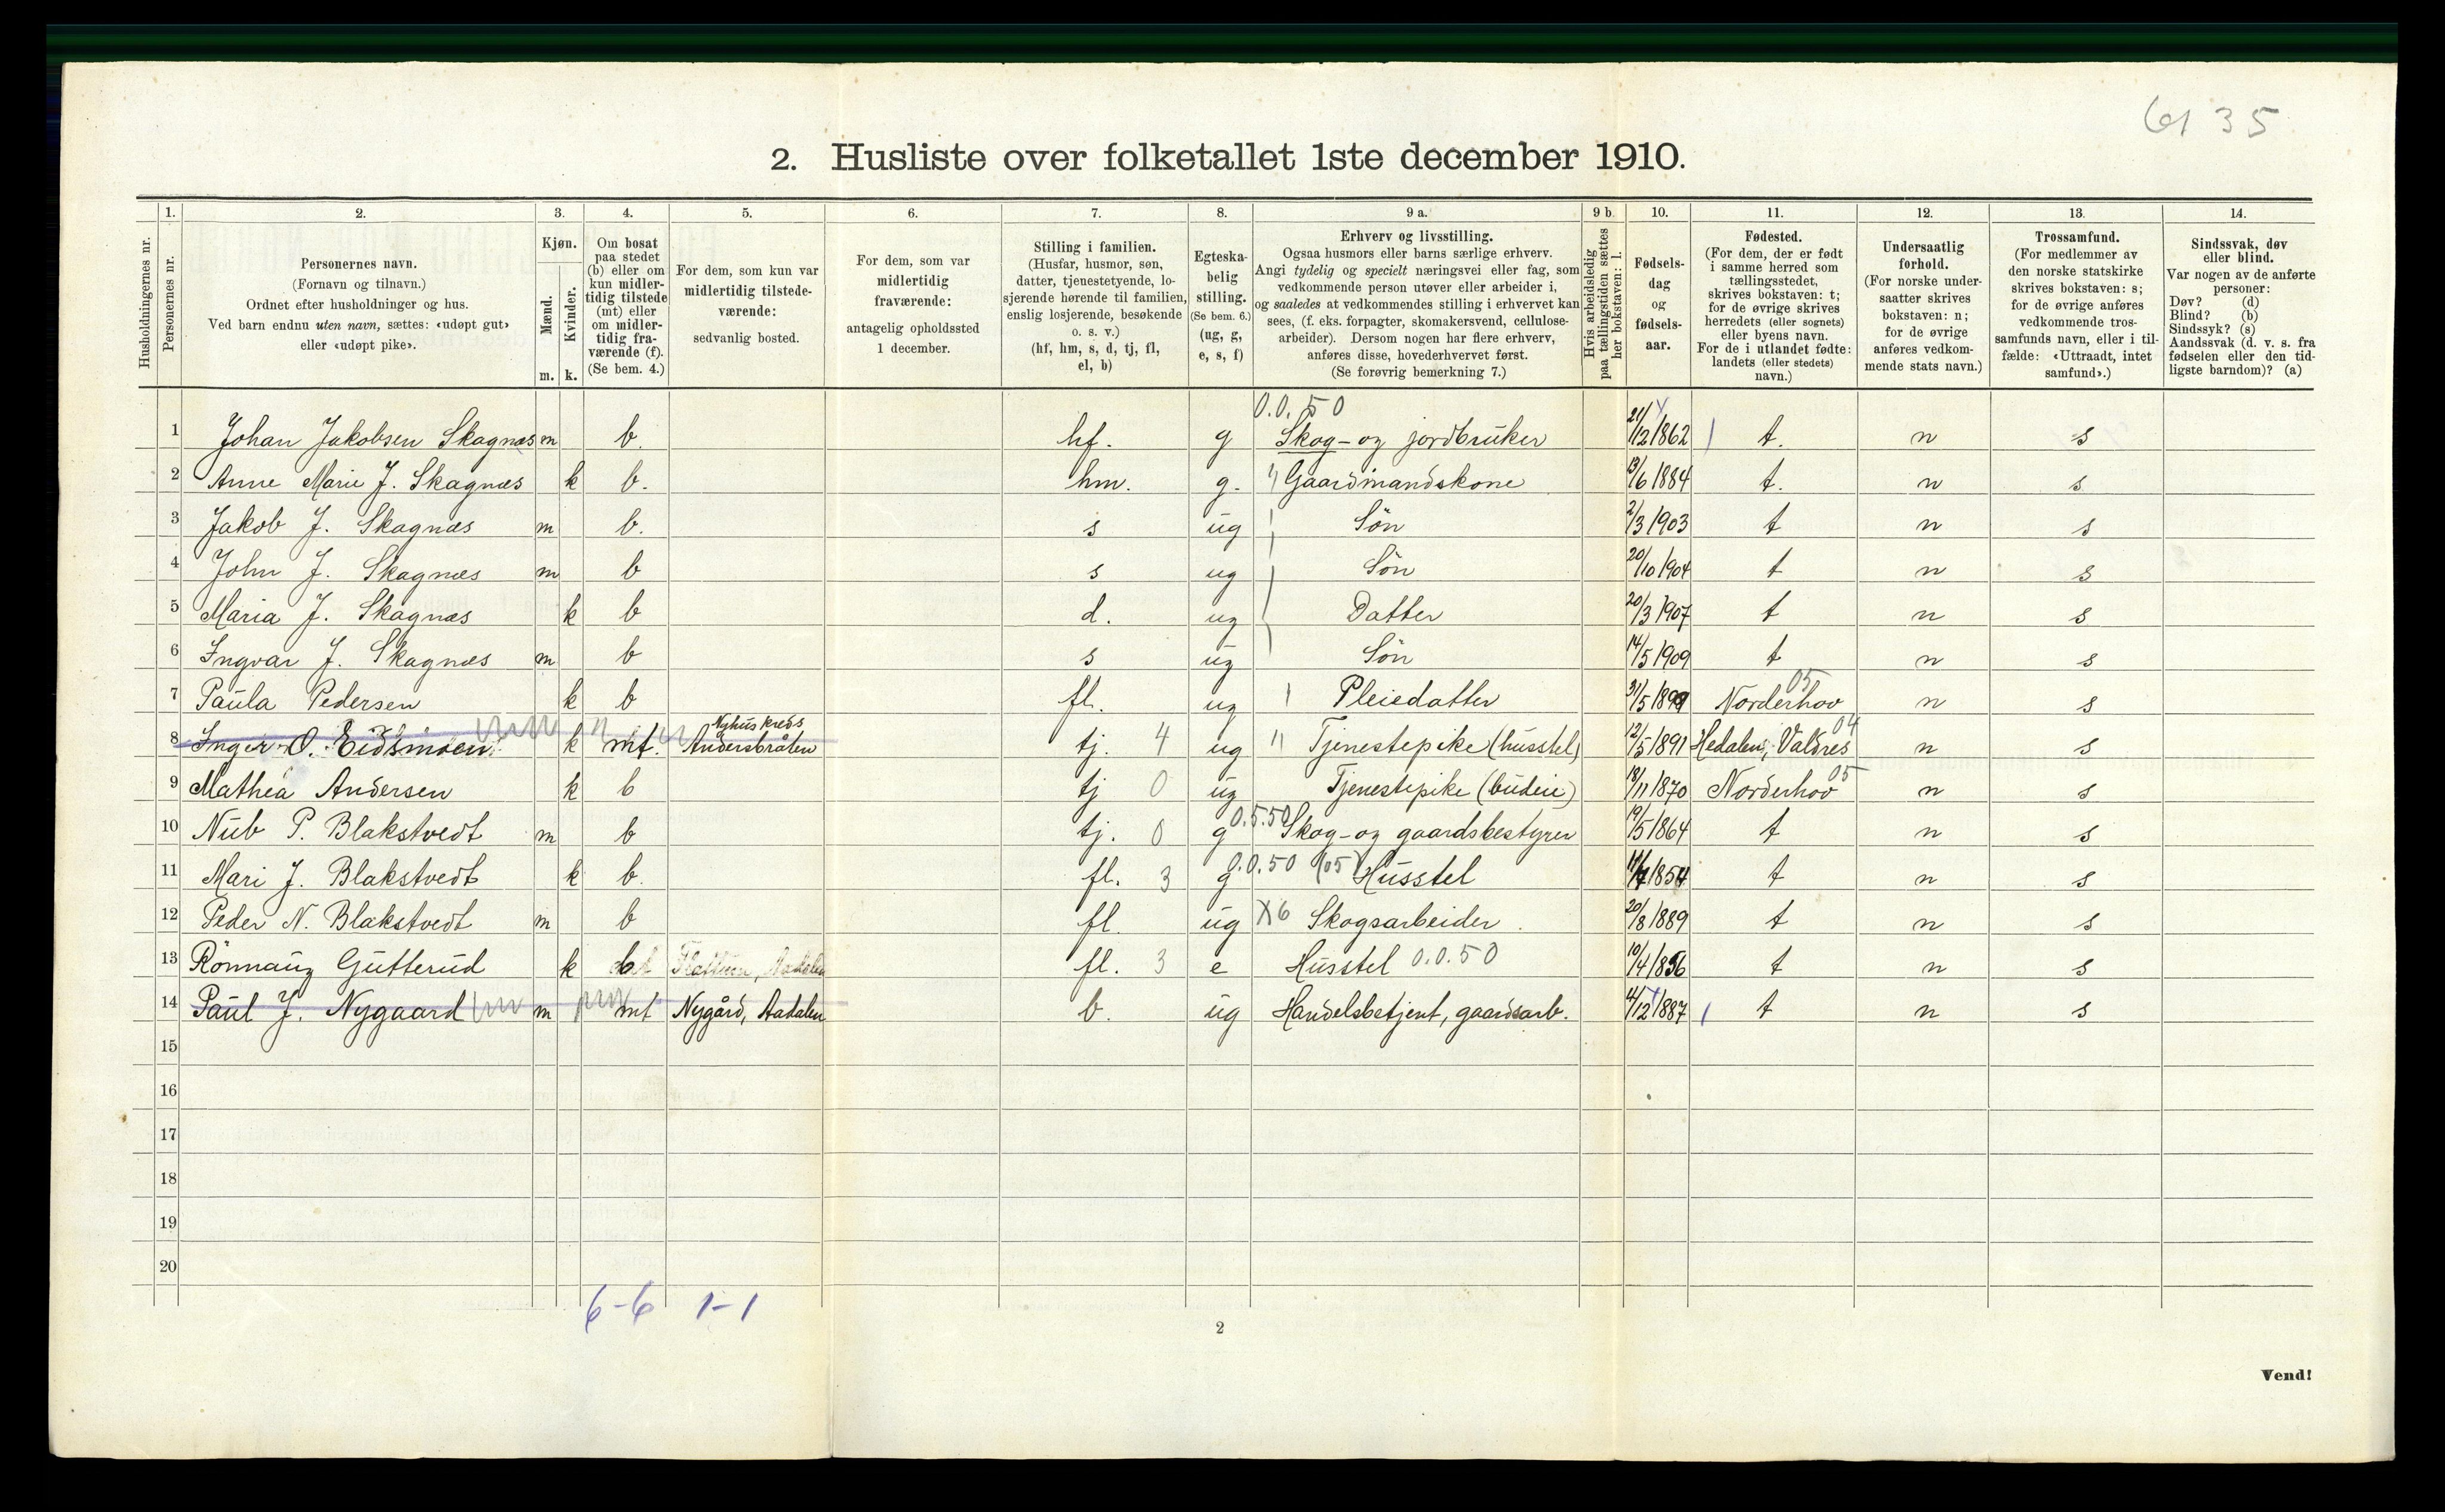 61 35
2. Husliste over folketallet 1ste december 1910.
Husholdningernes nr.
1. Personernes nr.
2. Personernes navn.
(Fornavn og tilnavn.)
Ordnet efter husholdninger og hus.
Ved barn endnu uten navn, sættes: «udøpt gut»
eller «udøpt pike».
3. Kjøn.
Mænd. m.
Kvinder. k.
4. Om bosat
paa stedet
(b) eller om
kun midler-
tidig tilstede
(mt) eller
om midler-
tidig fra-
værende (f).
(Se bem. 4.)
5. For dem, som kun var
midlertidig tilstede-
værende:
sedvanlig bosted.
6. For dem, som var
midlertidig
fraværende:
antagelig opholdssted
1 december.
7. Stilling i familien.
(Husfar, husmor, søn,
datter, tjenestetyende, lo-
sjerende hørende til familien,
enslig losjerende, besøkende
o. s. v.)
(hf, hm, s, d, tj, fl,
el, b)
8. Egteska-
belig
stilling.
(Se bem. 6.)
(ug, g,
e, s, f)
9 a. Erhverv og livsstilling.
Ogsaa husmors eller barns særlige erhverv.
Angi tydelig og specielt næringsvei eller fag, som
vedkommende person utøver eller arbeider i,
og saaledes at vedkommendes stilling i erhvervet kan
sees, (f. eks. forpagter, skomakersvend, cellulose-
arbeider). Dersom nogen har flere erhverv,
anføres disse, hovederhvervet først.
(Se forøvrig bemerkning 7.)
9 b. Hvis arbeidsledig
paa tællingstiden sættes
her bokstaven: l.
10. Fødsels-
dag
og
fødsels-
aar.
11. Fødested.
(For dem, der er født
i samme herred som
tællingsstedet,
skrives bokstaven: t;
for de øvrige skrives
herredets (eller sognets)
eller byens navn.
For de i utlandet fødte:
landets (eller stedets)
navn.)
12. Undersaatlig
forhold.
(For norske under-
saatter skrives
bokstaven: n;
for de øvrige
anføres vedkom-
mende stats navn.)
13. Trossamfund.
(For medlemmer av
den norske statskirke
skrives bokstaven: s;
for de øvrige anføres
vedkommende tros-
samfunds navn, eller i til-
fælde: «Uttraadt, intet
samfund».)
14. Sindssvak, døv
eller blind.
Var nogen av de anførte
personer:
Døv? (d)
Blind? (b)
Sindssyk? (s)
Aandssvak (d. v. s. fra
fødselen eller den tid-
ligste barndom)? (a)
0.0.50
1 Johan Jakobsen Skagnæs m b. hf. g Skog- og jordbruker 21/12 1862 t. n s
2 Anne Marie J. Skagnæs k b. hm. g. Gaardmandskone 13/6 1884 t. n s
3 Jakob J. Skagnæs m b. s ug Sön 2/3 1903 t n s
4 John J. Skagnæs m b s ug Sön 20/10 1904 t n s
5 Maria J. Skagnæs k b d. ug Datter 20/3 1907 t n s
6 Ingvar J. Skagnæs m b s ug Sön 14/5 1909 t n s
7 Paula Pedersen k b fl. ug Pleiedatter 31/5 1899 Norderhov 05 n s
8 Inger O. Eidsmoen k mt. Nyhus kreds Andersbråten tj. 4 ug Tjenestepike (husstel) 12/5 1891 Hedalen, Valdres 04 n s
9 Mathea Andersen k b tj 0 ug Tjenestepike (budeie) 18/11 1870 Norderhov 05 n s
10 Nub P. Blakstvedt m b tj. 0 g 0.5.50 Skog- og gaardsbestyrer 19/5 1864 t n s
11 Mari J. Blakstvedt k b. fl. 3 g 0.0.50 (05) Husstel 11/7 1854 t n s
12 Peder N. Blakstvedt m b fl. ug X6 Skogsarbeider. 20/8 1889 t n s
13 Rönnaug Gutterud k b fl. 3 e Husstel 0.0.50 10/4 1856 t n s
14 Paul J. Nygaard m mt Nygård, Aadalen b. ug Handelsbetjent, gaardsarb. 4/12 1887 t n s
15
16
17
18
19
20
6-6 1-1
2
Vend!